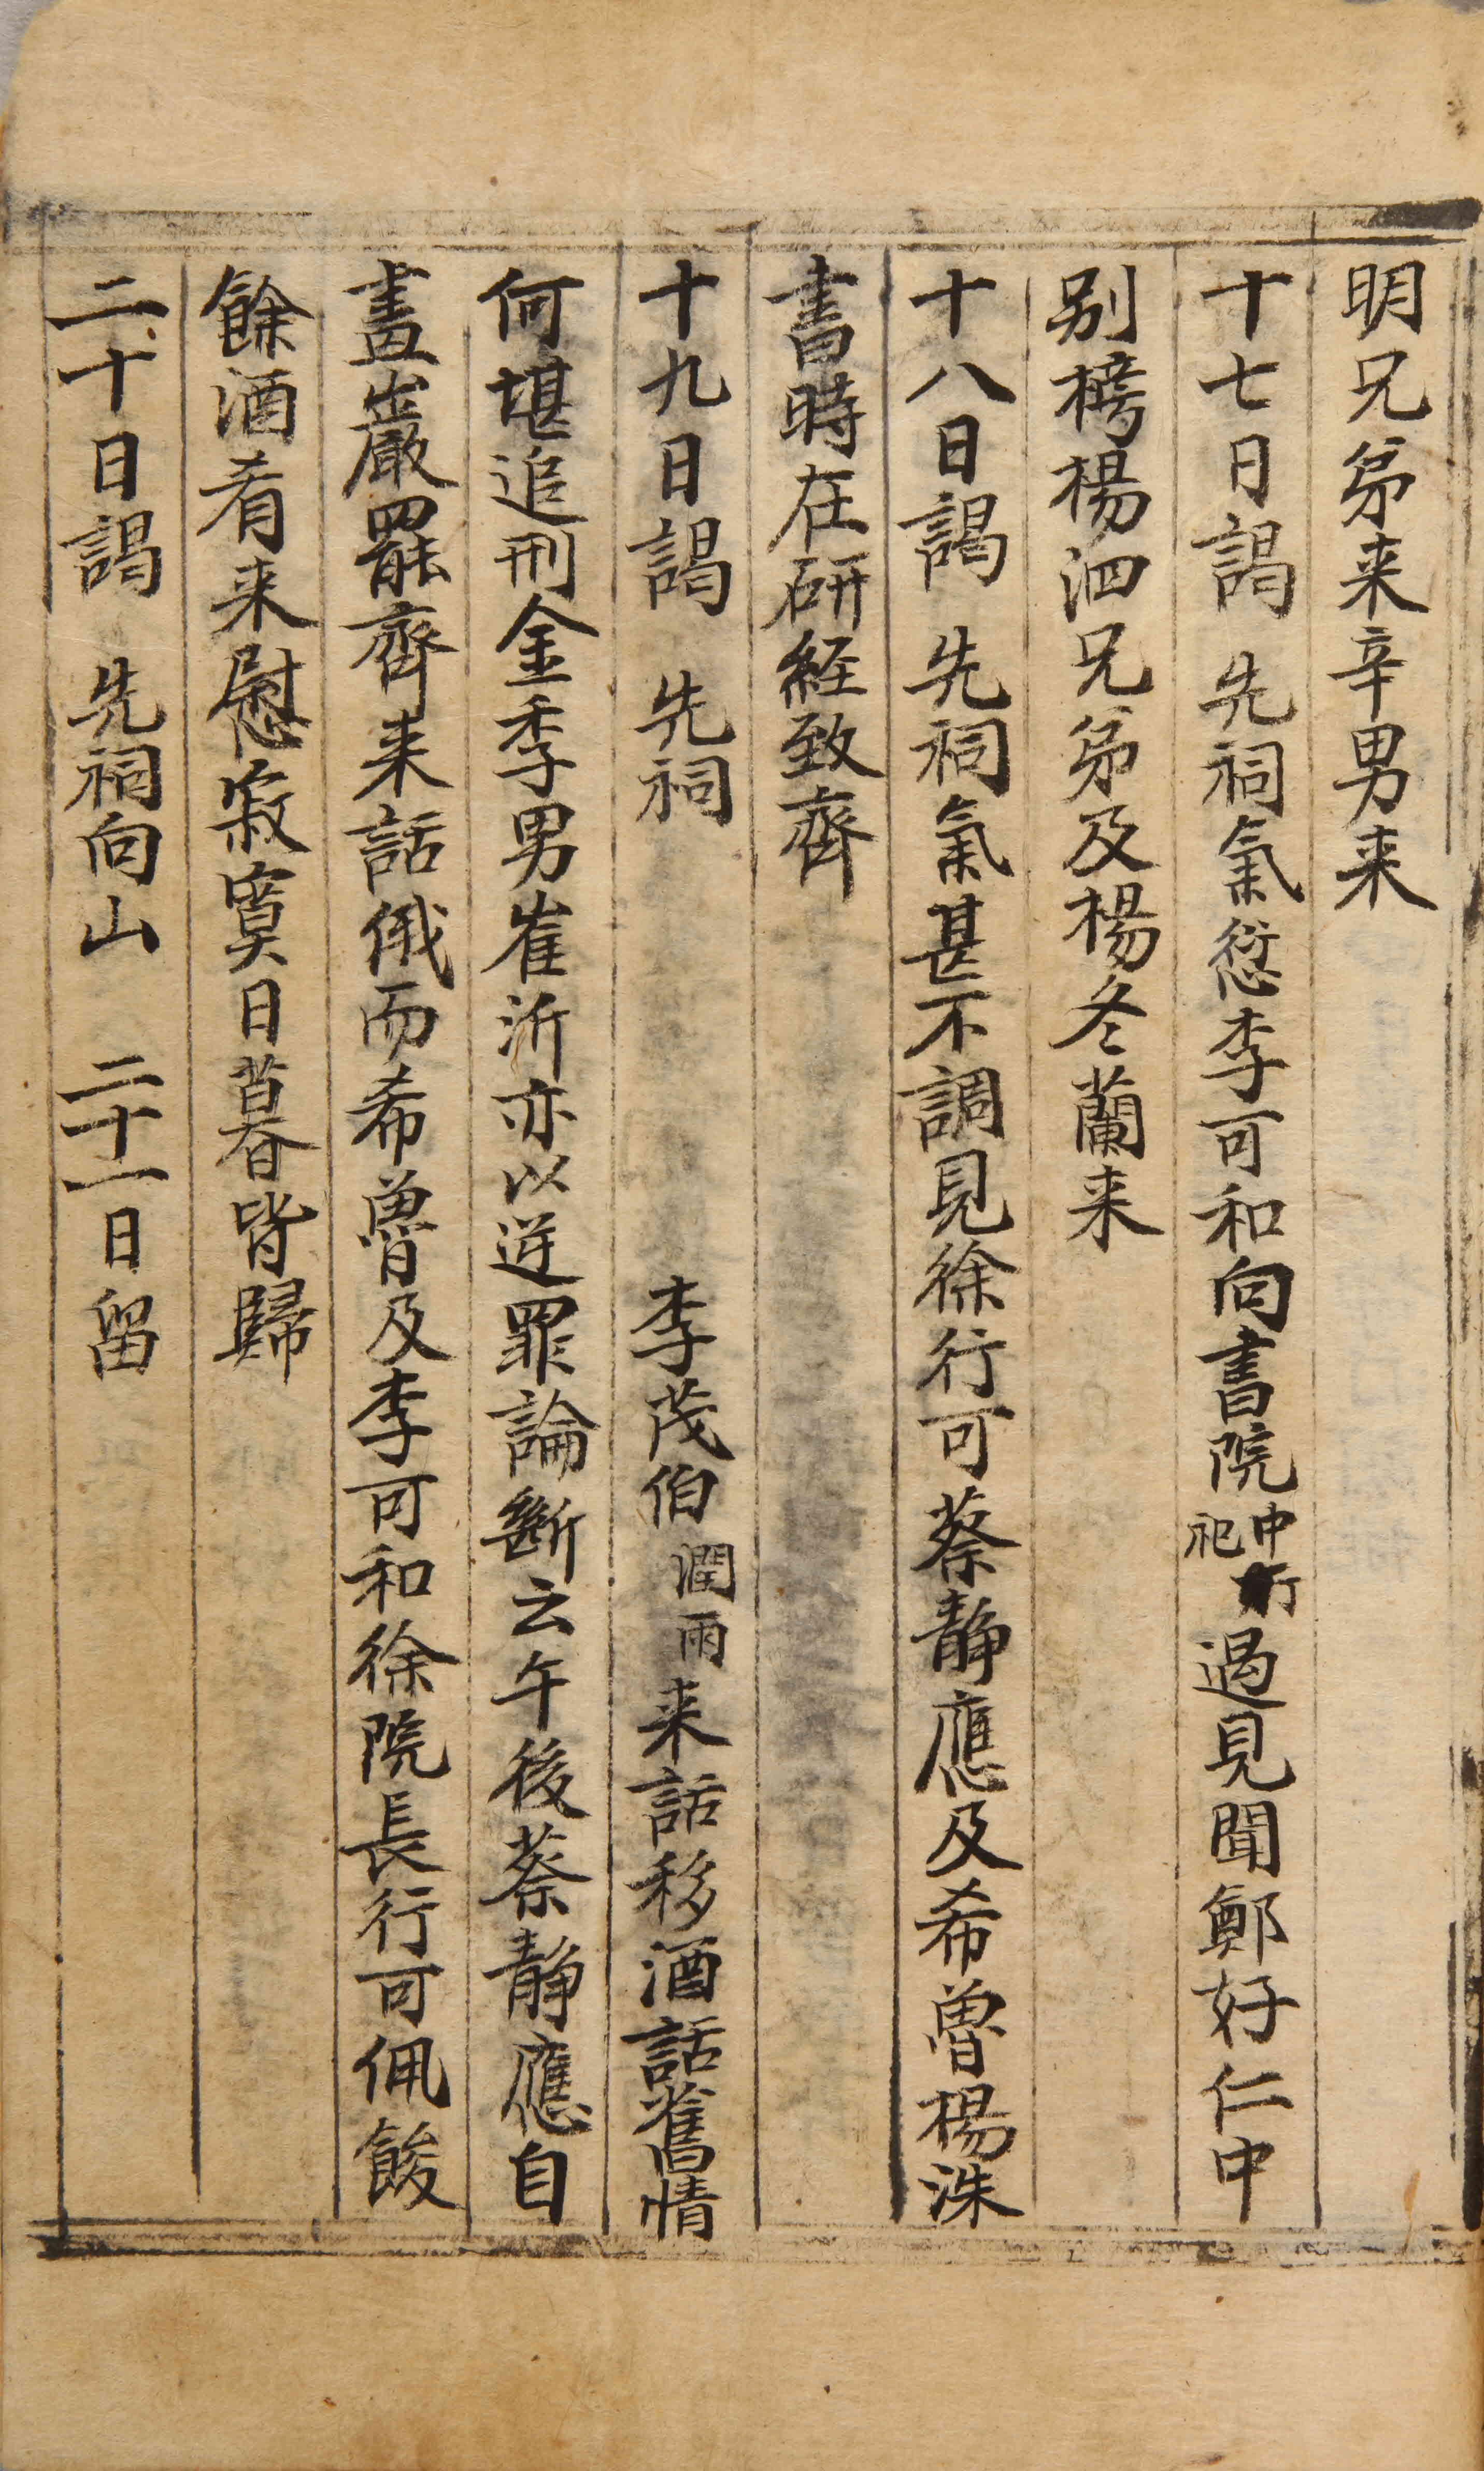 明兄弟来辛男来
十七日謁 先祠氣愆李可和向書院中行祀過見聞鄭好仁中
別樳楊泗兄弟及楊冬蘭来
十八日謁 先祠氣甚不調見徐行可蔡靜應及希魯楊洙
書時在研経致齊
十九日謁 先祠 李茂伯潤雨来話移酒話舊情
何堪追刑金季男崔沂亦以逆罪論斷云午後蔡靜應自
盡巖罷齊来話俄而希魯及李可和徐院長行可佩餕
餘酒肴来慰寂寞日暮皆歸
二十日謁 先祠向山 二十一日留